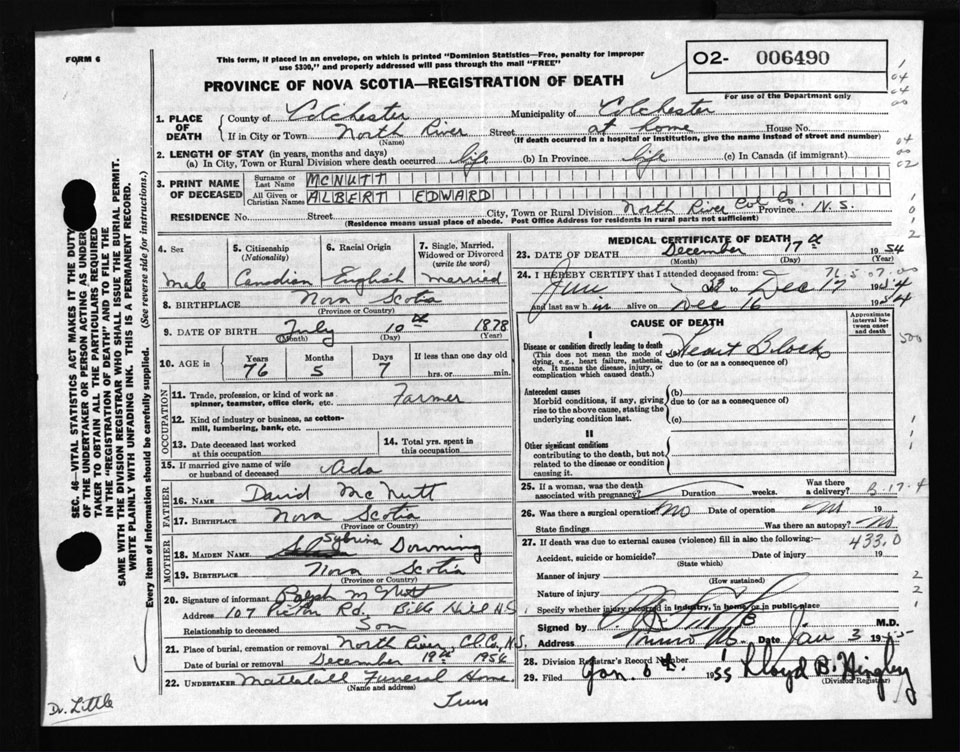 FORM 6
This form, if placed in an envelope, on which is printed "Dominion Statistics—Free, penalty for improper
use $300," and properly addressed will pass through the mail "FREE"
02- 006490
For use of the Department only
PROVINCE OF NOVA SCOTIA—REGISTRATION OF DEATH
SEC. 46—VITAL STATISTICS ACT MAKES IT THE DUTY
OF THE UNDERTAKER OR PERSON ACTING AS UNDER-
TAKER TO OBTAIN ALL THE PARTICULARS REQUIRED
IN THE "REGISTRATION OF DEATH" AND TO FILE THE
SAME WITH THE DIVISION REGISTRAR WHO SHALL ISSUE THE BURIAL PERMIT.
WRITE PLAINLY WITH UNFADING INK. THIS IS A PERMANENT RECORD.
Every item of information should be carefully supplied. (See reverse side for instructions.)
1. PLACE OF DEATH
County of Colchester Municipality of Colchester
If in City or Town North River Street at home House No.
(Name) (If death occurred in a hospital or institution, give the name instead of street and number)
2. LENGTH OF STAY (in years, months and days)
(a) In City, Town or Rural Division where death occurred life (b) In Province life (c) In Canada (if immigrant)
3. PRINT NAME OF DECEASED
Surname or Last Name MCNUTT
All Given or Christian Names ALBERT EDWARD
RESIDENCE No. Street City, Town or Rural Division North River Col. Co. Province N.S.
(Residence means usual place of abode. Post Office Address for residents in rural parts not sufficient)
4. Sex Male
5. Citizenship (Nationality) Canadian
6. Racial Origin English
7. Single, Married, Widowed or Divorced (write the word) Married
8. BIRTHPLACE Nova Scotia
(Province or Country)
9. DATE OF BIRTH July 10th 1878
(Month) (Day) (Year)
10. AGE in Years 76 Months 5 Days 7 If less than one day old hrs. or min.
OCCUPATION
11. Trade, profession, or kind of work as
spinner, teamster, office clerk, etc. Farmer
12. Kind of industry or business, as cotton-
mill, lumbering, bank, etc.
13. Date deceased last worked
at this occupation
14. Total yrs. spent in
this occupation
15. If married give name of wife
or husband of deceased Ada
FATHER
16. NAME David McNutt
17. BIRTHPLACE Nova Scotia
(Province or Country)
MOTHER
18. MAIDEN NAME Sybrina Downing
19. BIRTHPLACE Nova Scotia
(Province or Country)
20. Signature of informant Ralph McNutt
Address 107 Pictou Rd. Bible Hill N.S.
Relationship to deceased Son
21. Place of burial, cremation or removal North River Cl. Co., N.S.
Date of burial or removal December 19th 1956
22. UNDERTAKER Mattatall Funeral Home
(Name and address)
Truro
Dr. Little
MEDICAL CERTIFICATE OF DEATH
23. DATE OF DEATH December 17th 1954
(Month) (Day) (Year)
24. I HEREBY CERTIFY that I attended deceased from:
June to Dec 17 1954
and last saw h im alive on Dec 16 1954
CAUSE OF DEATH
Approximate interval between onset and death
I
Disease or condition directly leading to death
(This does not mean the mode of
dying, e.g., heart failure, asthenia,
etc. It means the disease, injury, or
complication which caused death.)
(a) Heart Block
due to (or as a consequence of)
Antecedent causes
Morbid conditions, if any, giving
rise to the above cause, stating the
underlying condition last.
(b)
due to (or as a consequence of)
(c)
II
Other significant conditions
contributing to the death, but not
related to the disease or condition
causing it.
25. If a woman, was the death
associated with pregnancy? Duration weeks. Was there a delivery?
B.17.4
26. Was there a surgical operation? No Date of operation 19
State findings Was there an autopsy? No
27. If death was due to external causes (violence) fill in also the following:
433.0
Accident, suicide or homicide? Date of injury 19
(State which)
Manner of injury
(How sustained)
Nature of injury
Specify whether injury occurred in industry, in home, or in public place
Signed by M.D.
Address Truro N.S. Date Jan 3 1955
28. Division Registrar's Record Number 1
29. Filed Jan. 6th. 1955 Lloyd B. Hingley
(Division Registrar)